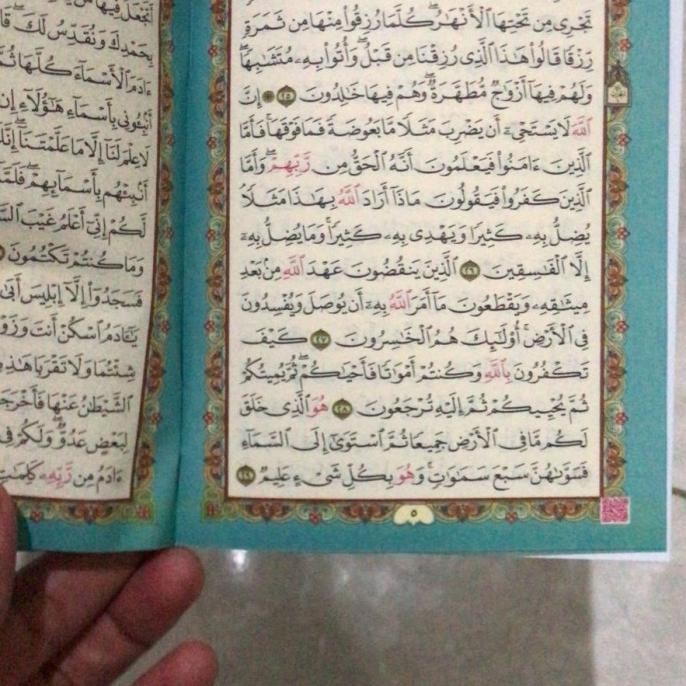 تَجْرِي مِن تَحْتِهَا ٱلْأَنْهَٰرُ ۖ كُلَّمَا رُزِقُوا۟ مِنْهَا مِن ثَمَرَةٍ
رِّزْقًا قَالُوا۟ هَٰذَا ٱلَّذِى رُزِقْنَا مِن قَبْلُ ۖ وَأُتُوا۟ بِهِۦ مُتَشَٰبِهًا ۖ
وَلَهُمْ فِيهَآ أَزْوَٰجٌ مُّطَهَّرَةٌ ۖ وَهُمْ فِيهَا خَٰلِدُونَ ٢٥ ۞ إِنَّ
ٱللَّهَ لَا يَسْتَحْىِۦٓ أَن يَضْرِبَ مَثَلًا مَّا بَعُوضَةً فَمَا فَوْقَهَا ۚ فَأَمَّا
ٱلَّذِينَ ءَامَنُوا۟ فَيَعْلَمُونَ أَنَّهُ ٱلْحَقُّ مِن رَّبِّهِمْ ۖ وَأَمَّا
ٱلَّذِينَ كَفَرُوا۟ فَيَقُولُونَ مَاذَآ أَرَادَ ٱللَّهُ بِهَٰذَا مَثَلًا ۘ
يُضِلُّ بِهِۦ كَثِيرًا وَيَهْدِى بِهِۦ كَثِيرًا ۚ وَمَا يُضِلُّ بِهِۦٓ
إِلَّا ٱلْفَٰسِقِينَ ٢٦ ٱلَّذِينَ يَنقُضُونَ عَهْدَ ٱللَّهِ مِنۢ بَعْدِ
مِيثَٰقِهِۦ وَيَقْطَعُونَ مَآ أَمَرَ ٱللَّهُ بِهِۦٓ أَن يُوصَلَ وَيُفْسِدُونَ
فِى ٱلْأَرْضِ ۚ أُو۟لَٰٓئِكَ هُمُ ٱلْخَٰسِرُونَ ٢٧ كَيْفَ
تَكْفُرُونَ بِٱللَّهِ وَكُنتُمْ أَمْوَٰتًا فَأَحْيَٰكُمْ ۖ ثُمَّ يُمِيتُكُمْ
ثُمَّ يُحْيِيكُمْ ثُمَّ إِلَيْهِ تُرْجَعُونَ ٢٨ هُوَ ٱلَّذِى خَلَقَ
لَكُم مَّا فِى ٱلْأَرْضِ جَمِيعًا ثُمَّ ٱسْتَوَىٰٓ إِلَى ٱلسَّمَآءِ
فَسَوَّىٰهُنَّ سَبْعَ سَمَٰوَٰتٍ ۚ وَهُوَ بِكُلِّ شَىْءٍ عَلِيمٌ ٢٩
٥
أَتَجْعَلُ فِيهَا مَن
بِحَمْدِكَ وَنُقَدِّسُ لَكَ ۖ
ءَادَمَ ٱلْأَسْمَآءَ كُلَّهَا
أَنۢبِـُٔونِى بِأَسْمَآءِ هَٰٓؤُلَآءِ إِن
لَا عِلْمَ لَنَآ إِلَّا مَا عَلَّمْتَنَآ ۖ إِنَّكَ
أَنۢبِئْهُم بِأَسْمَآئِهِمْ ۖ فَلَمَّآ
لَّكُمْ إِنِّىٓ أَعْلَمُ غَيْبَ
وَمَا كُنتُمْ تَكْتُمُونَ
فَسَجَدُوٓا۟ إِلَّآ إِبْلِيسَ أَبَىٰ
يَٰٓـَٔادَمُ ٱسْكُنْ أَنتَ
شِئْتُمَا وَلَا تَقْرَبَا هَٰذِهِ
ٱلشَّيْطَٰنُ عَنْهَا
لِبَعْضٍ عَدُوٌّ ۖ وَلَكُمْ فِى
ءَادَمُ مِن رَّبِّهِۦ كَلِمَٰتٍ